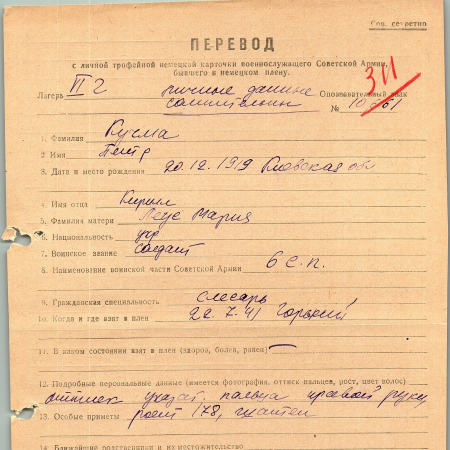 Сов. секретно
ПЕРЕВОД
с личной трофейной немецкой карточки военнослужащего Советской Армии,
бывшего в немецком плену.
311
Лагерь VI 2 личные данные Опознавательный знак
сомнительны № 10261
1. Фамилия Кучма
2. Имя Петр
3. Дата и место рождения 20.12.1919 Киевская обл
4. Имя отца Кирилл
5. Фамилия матери Мария
6. Национальность укр
7. Воинское звание солдат
8. Наименование воинской части Советской Армии 6 с.п.
9. Гражданская специальность слесарь
10. Когда и где взят в плен 22.7.41 Горький
11. В каком состоянии взят в плен (здоров, болен, ранен) —
12. Подробные персональные данные (имеется фотография, оттиск пальцев, рост, цвет волос)
оттиск указат. пальца правой руки,
13. Особые приметы рост 178, шатен
14. Ближайшие родственники и их местожительство